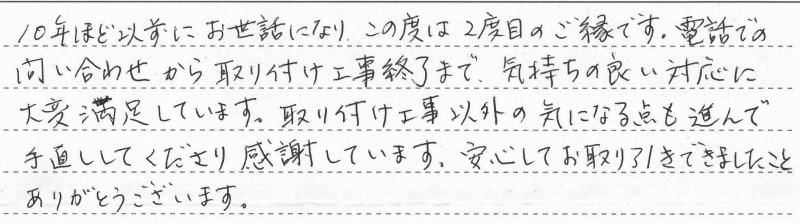 10年ほど以前にお世話になり、この度は2度目のご縁です。電話での
問い合わせから取り付け工事終了まで、気持ちの良い対応に
大変満足しています。取り付け工事以外の気になる点も進んで
手直ししてくださり感謝しています。安心してお取り引きできましたこと
ありがとうございます。